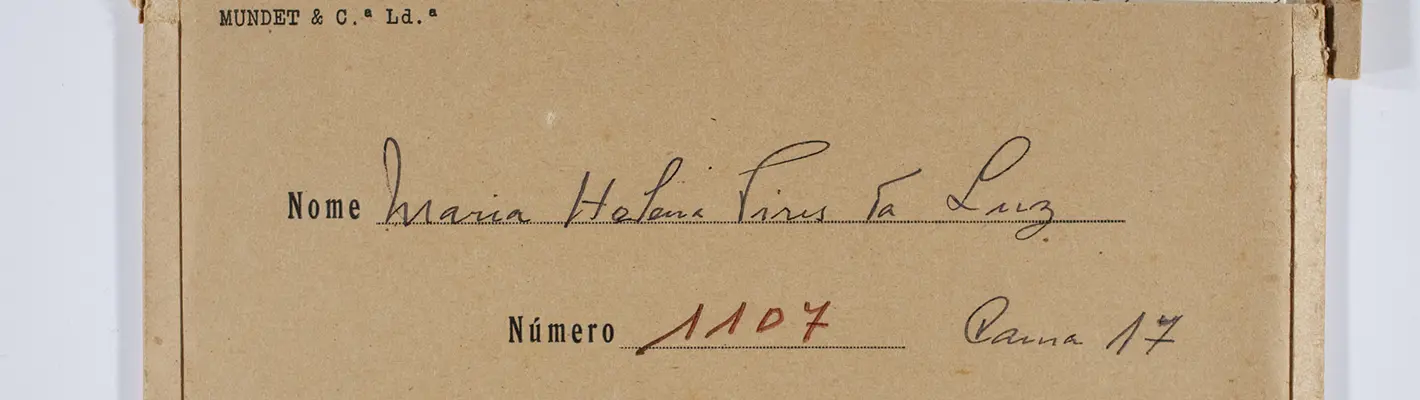 MUNDET & C.ª Ld.ª
Nome Maria Helena Pires da Luz
Número 1107 Cama 17